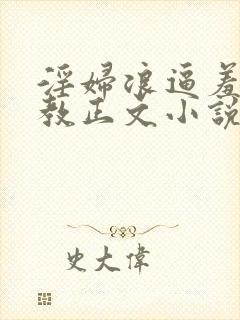 淫婦浪逼羞
教正文小說
史大偉